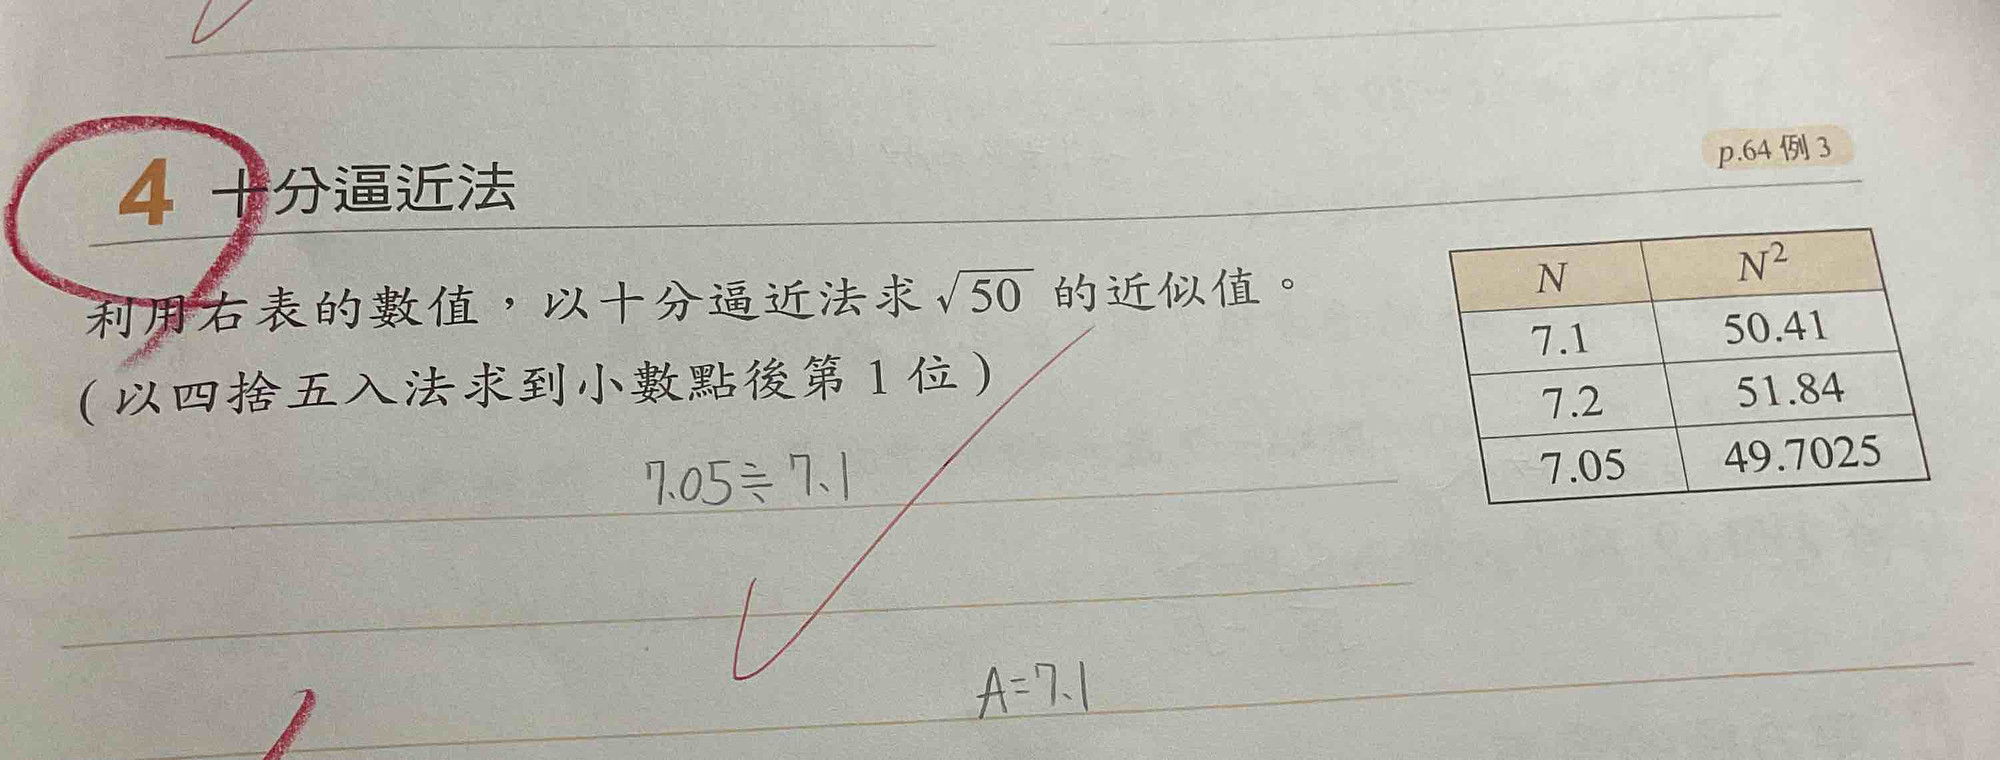 p.64 例3
4 十分逼近法
利用右表的數值，以十分逼近法求√50 的近似值。
(以四捨五入法求到小數點後第1位)
N N²
7.1 50.41
7.2 51.84
7.05 49.7025
7.05≒7.1
A=7.1